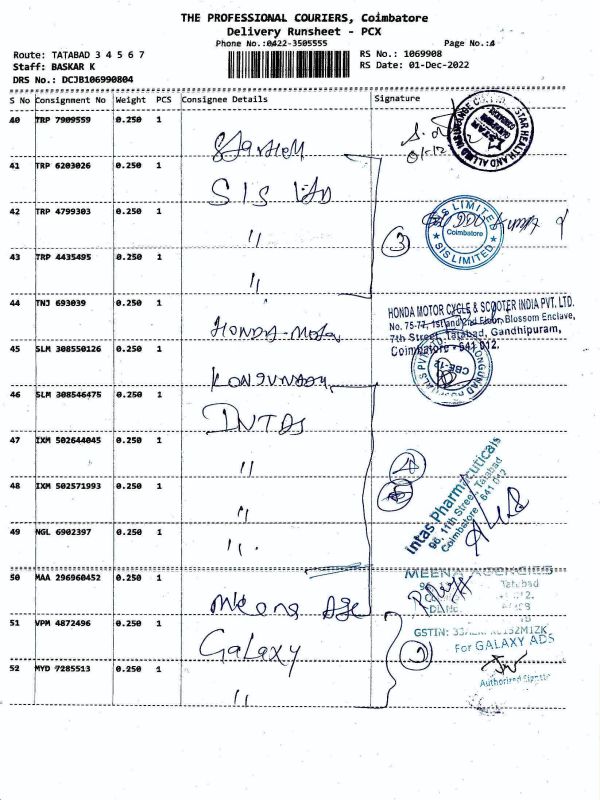 THE PROFESSIONAL COURIERS, Coimbatore
Delivery Runsheet - PCX
Phone No.:0422-3505555
Page No.:4
Route: TATABAD 3 4 5 6 7
Staff: BASKAR K
DRS No.: DCJB106990804
RS No.: 1069908
RS Date: 01-Dec-2022
S No Consignment No Weight PCS Consignee Details Signature
40 TRP 7909559 0.250 1
STAR HEALTH AND ALLIED INSURANCE CO.
41 TRP 6203026 0.250 1 SIS Ltd
42 TRP 4799303 0.250 1 "
3
SIS LIMITED
Coimbatore
SIS LIMITED
43 TRP 4435495 0.250 1 "
44 TNJ 693039 0.250 1 HONDA-Motor
HONDA MOTOR CYCLE & SCOOTER INDIA PVT. LTD.
No. 75-77, 1st and 2nd Floor, Blossom Enclave,
7th Street, Tatabad, Gandhipuram,
Coimbatore - 641 012.
45 SLM 308550126 0.250 1
CBE-12
46 SLM 308546475 0.250 1 INTAS
47 IXM 502644045 0.250 1 "
4
Intas Pharmaceuticals
96, 11th Street, Tatabad
Coimbatore - 641 012
48 IXM 502571993 0.250 1 "
49 NGL 6902397 0.250 1 "
50 MAA 296960452 0.250 1 Meena Age
MEENA AGENCIES
Tatabad
51 VPM 4872496 0.250 1 Galaxy
2
For GALAXY ADS
Authorised Signatory
52 MYD 7285513 0.250 1 "